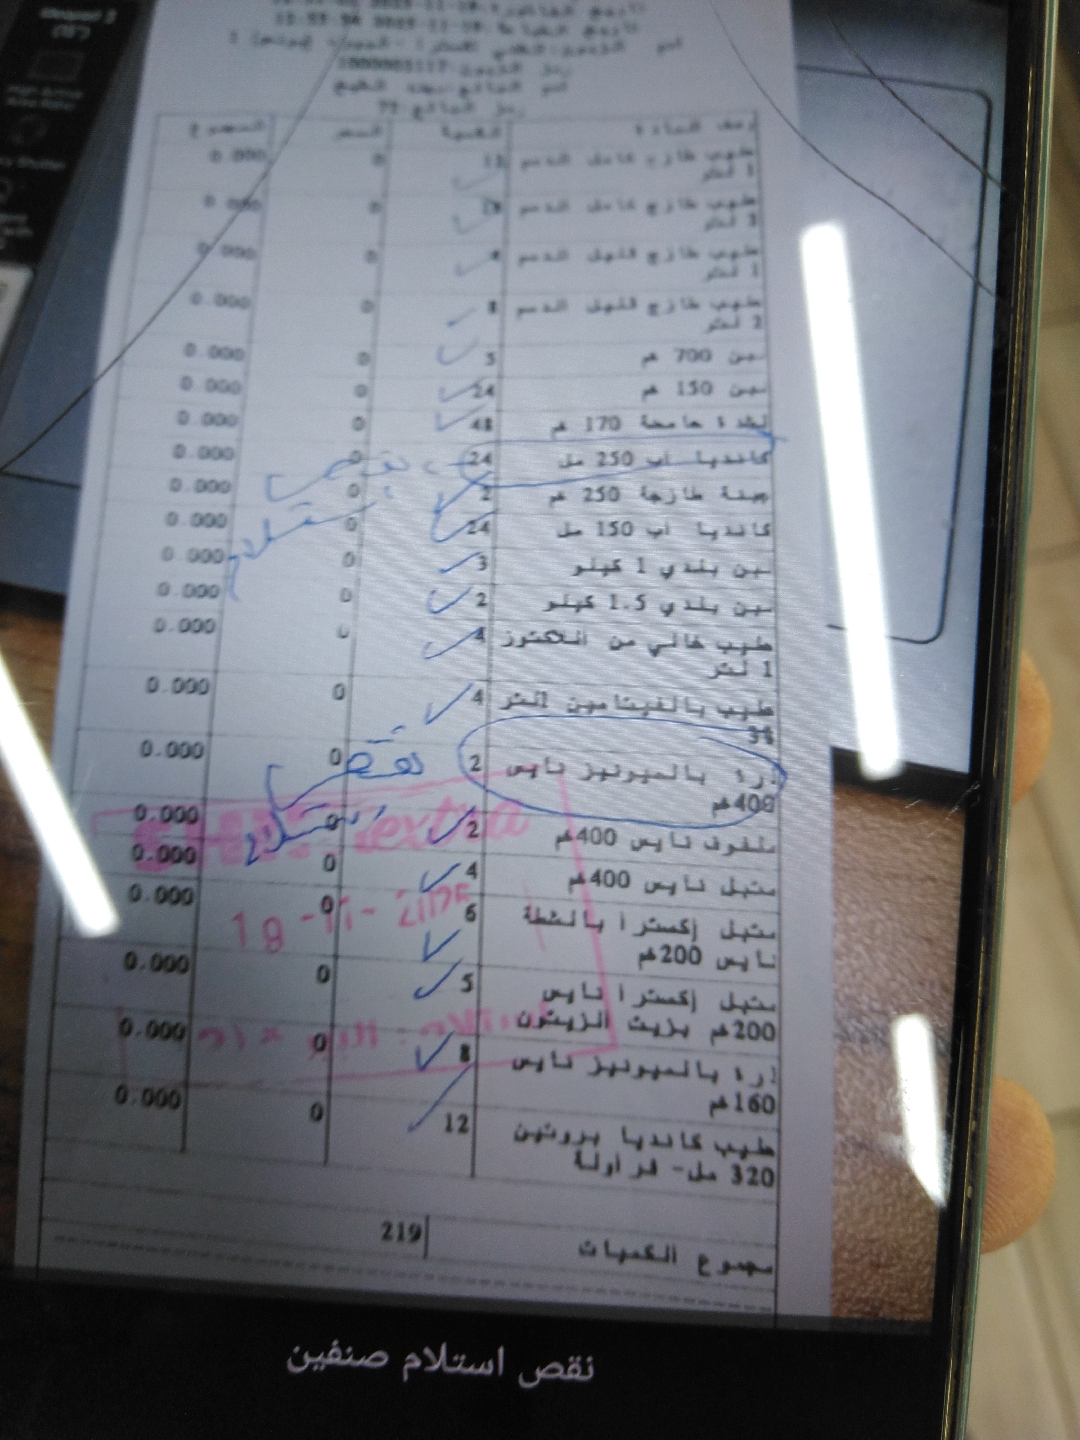 رمز الزبون:1000003117
رمز البائع:77
وصف المادة الكمية السعر المجموع
حليب طازج كامل الدسم 1 لتر 0 0.000
حليب طازج كامل الدسم 2 لتر 0 0.000
حليب طازج قليل الدسم 1 لتر 0 0.000
حليب طازج قليل الدسم 2 لتر 8 0 0.000
لبن 700 غم 5 0 0.000
لبن 150 غم 24 0 0.000
قشدة حامضة 170 غم 48 0 0.000
كانديا أب 250 مل 24 0 0.000
نقص
جبنة طازجة 250 غم 2 0 0.000
استلام
كانديا أب 150 مل 24 0 0.000
لبن بلدي 1 كيلو 3 0 0.000
لبن بلدي 1.5 كيلو 2 0 0.000
حليب خالي من اللاكتوز 4 0 0.000
1 لتر
حليب بالفيتامين 1لتر 4 0 0.000
3%
ذرة بالميونيز نايس 2 0 0.000
400غم
نقص
استلام
ملفوف نايس 400غم 2 0 0.000
متبل نايس 400غم 4 0 0.000
متبل إكسترا بالشطة 6 0 0.000
نايس 200غم
extra
متبل إكسترا نايس 5 0 0.000
200غم بزيت الزيتون
ذرة بالميونيز نايس 8 0 0.000
160غم
حليب كانديا بروتين 12 0 0.000
320 مل- فراولة
مجموع الكميات 219
نقص استلام صنفين